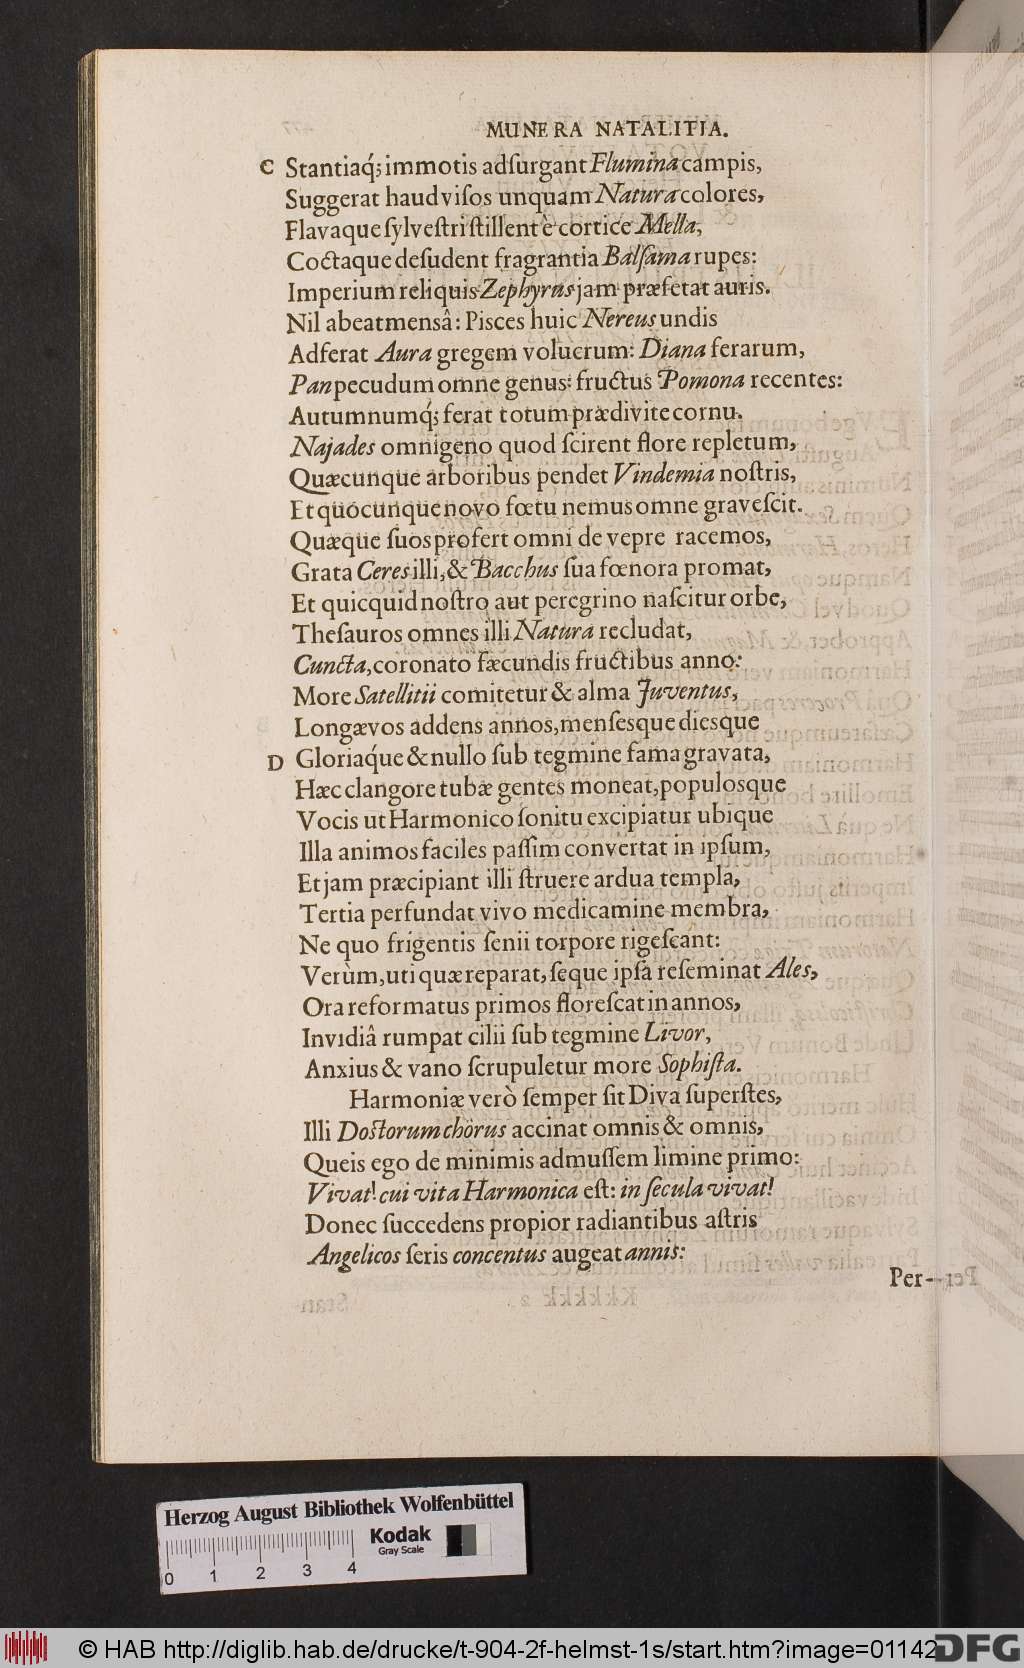 MUNERA NATALITIA.
C Stantiaq́; immotis adſurgant Flumina campis,
Suggerat haud viſos unquam Natura colores,
Flavaque ſylveſtri ſtillent è cortice Mella,
Coctaque deſudent fragrantia Balſama rupes:
Imperium reliquis Zephyrus jam præfetat auris.
Nil abeat mensâ: Pisces huic Nereus undis
Adferat Aura gregem volucrum: Diana ferarum,
Pan pecudum omne genus: fructus Pomona recentes:
Autumnumq́; ferat totum prædivite cornu.
Najades omnigeno quod ſcirent flore repletum,
Quæcunque arboribus pendet Vindemia noſtris,
Et quócunque novo fœtu nemus omne graveſcit.
Quæque ſuos profert omni de vepre racemos,
Grata Ceres illi, & Bacchus ſua fœnora promat,
Et quicquid noſtro aut peregrino naſcitur orbe,
Theſauros omnes illi Natura recludat,
Cuncta, coronato fæcundis fructibus anno:
More Satellitii comitetur & alma Juventus,
Longævos addens annos, menſesque diesque
D Gloriaq́ue & nullo ſub tegmine fama gravata,
Hæc clangore tubæ gentes moneat, populosque
Vocis ut Harmonico ſonitu excipiatur ubique
Illa animos faciles paſſim convertat in ipſum,
Et jam præcipiant illi ſtruere ardua templa,
Tertia perfundat vivo medicamine membra,
Ne quo frigentis ſenii torpore rigeſcant:
Verùm, uti quæ reparat, ſeque ipſa reſeminat Ales,
Ora reformatus primos floreſcat in annos,
Invidiâ rumpat cilii ſub tegmine Livor,
Anxius & vano ſcrupuletur more Sophiſta.
Harmoniæ verò ſemper ſit Diva ſuperſtes,
Illi Doctorum chorus accinat omnis & omnis,
Queis ego de minimis admuſſem limine primo:
Vivat! cui vita Harmonica eſt: in ſecula vivat!
Donec ſuccedens propior radiantibus aſtris
Angelicos ſeris concentus augeat annis:
Per-
Herzog August Bibliothek Wolfenbüttel
Kodak
Gray Scale
0 1 2 3 4
© HAB http://diglib.hab.de/drucke/t-904-2f-helmst-1s/start.htm?image=01142
DFG